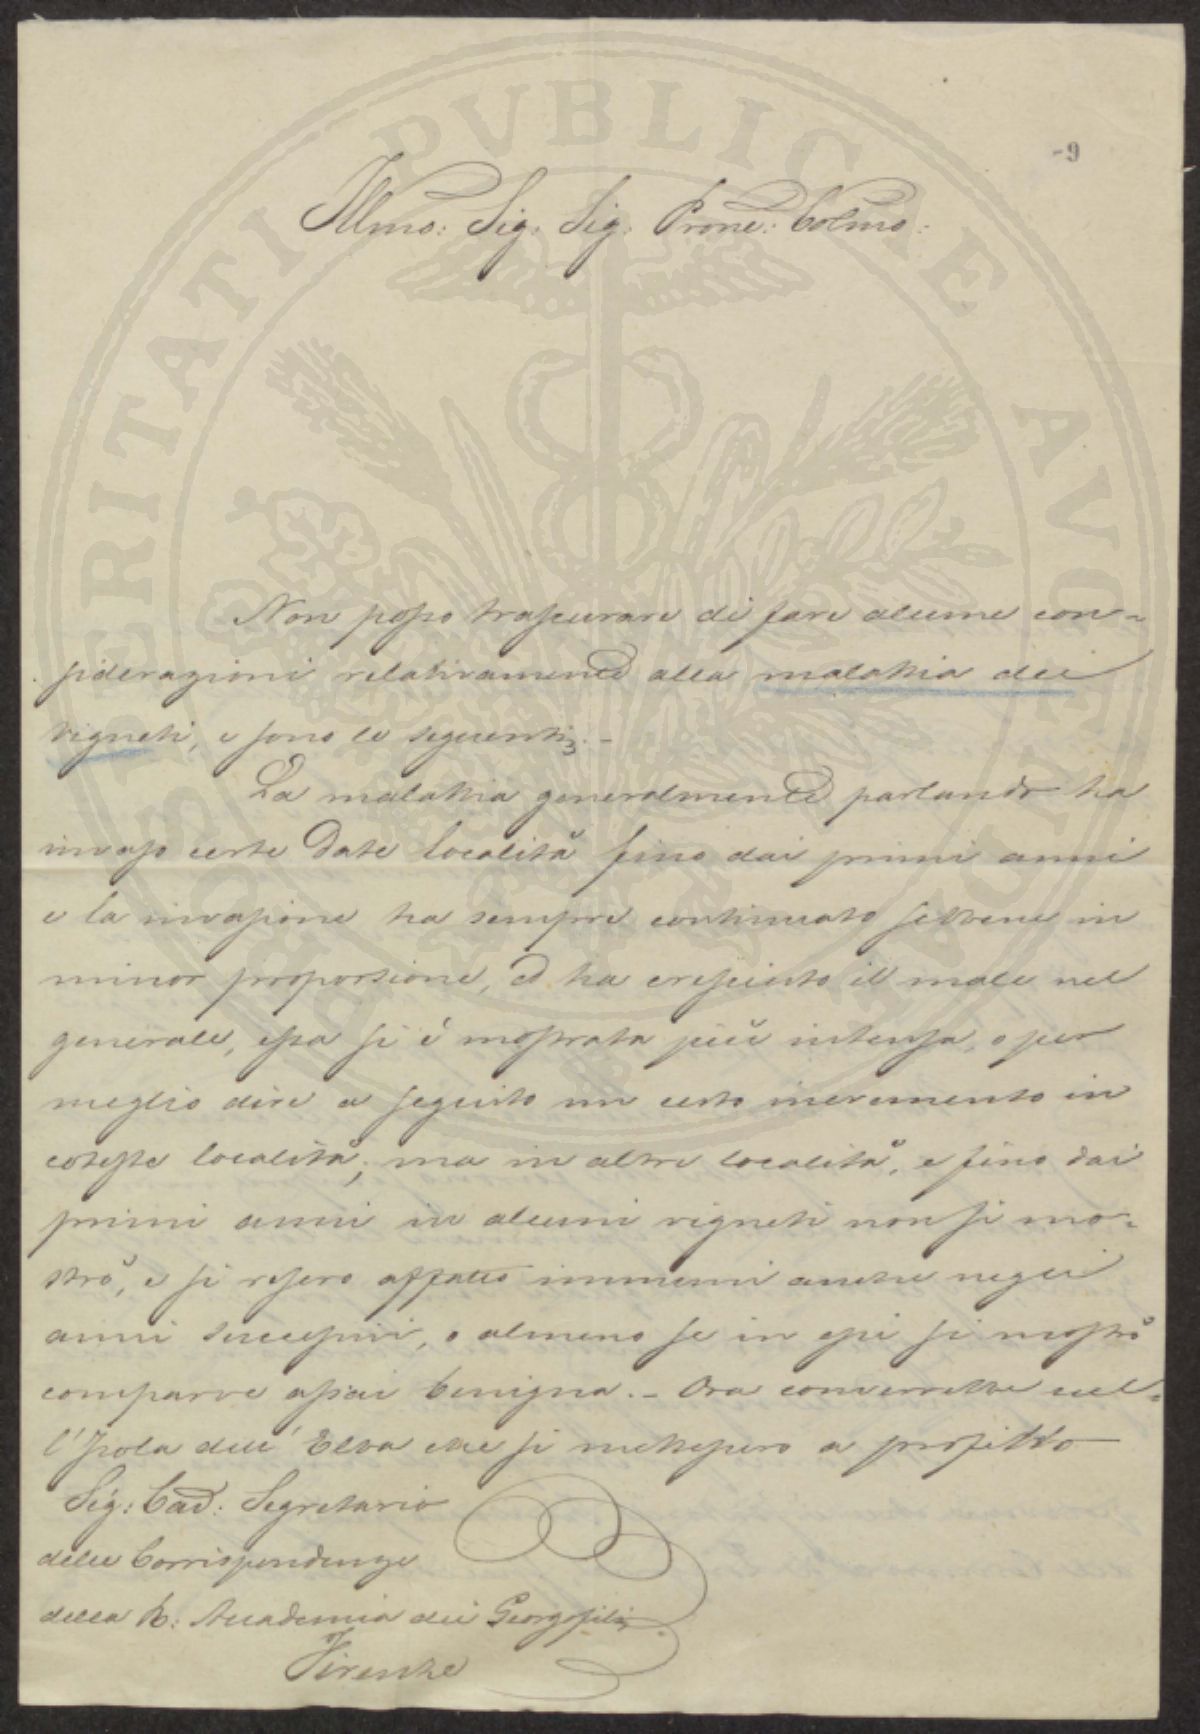 -9
Illmo: Sig: Sig: Prone: Colmo:
Non posso trascurare di fare alcune con-
siderazioni relativamente alla malattia dei
vigneti, e sono le seguenti. -
La malattia generalmente parlando ha
invaso certe date località fino dai primi anni
e la invasione ha sempre continuato sebbene in
minor proporzione, ed ha cresciuto il male nel
generale, essa si è mostrata più intensa, o per
meglio dire a seguito un certo incremento in
coteste località; ma in altre località, e fino dai
primi anni in alcuni vigneti non si mo-
strò, e si resero affatto immuni anche negli
anni successivi, o almeno se in essi si mostrò
comparve assai benigna. - Ora converrebbe nel-
l'Isola dell'Elba che si mettessero a profitto
Sig: Cav: Segretario
delle Corrispondenze
della R: Accademia dei Georgofili
Firenze
PROSPERITATI PVBLICAE AVGENDAE